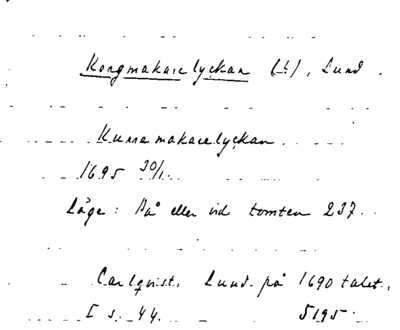 Korgmakarelyckan (†), Lund.
Kurramakarelyckan
1695 30/1.
Läge: På eller vid tomten 237.
Carlqvist. Lund på 1690 talet,
I s. 44. 5195.